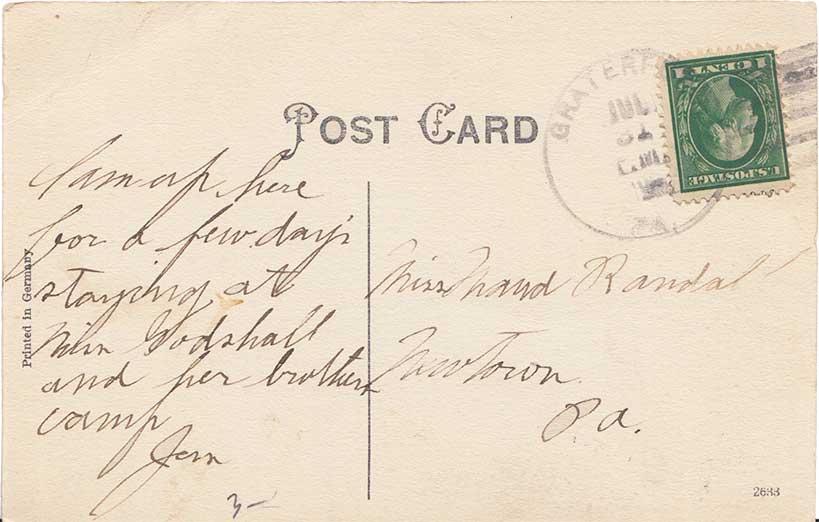 POST CARD
I am up here
for a few days
staying at
Miss Godshall
and her brothers
camp
Jem
3-
Miss Maud Randal
Newtown
Pa.
GRATERF
JUL
31
PA.
1 CENT 1
U.S. POSTAGE
Printed in Germany
2633